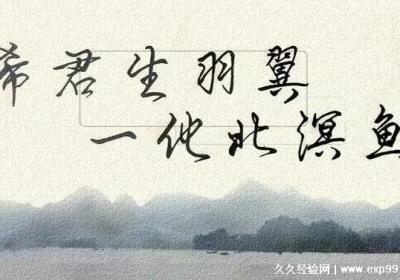 希君生羽翼
一化北溟鱼
久久经验网 | www.exp99